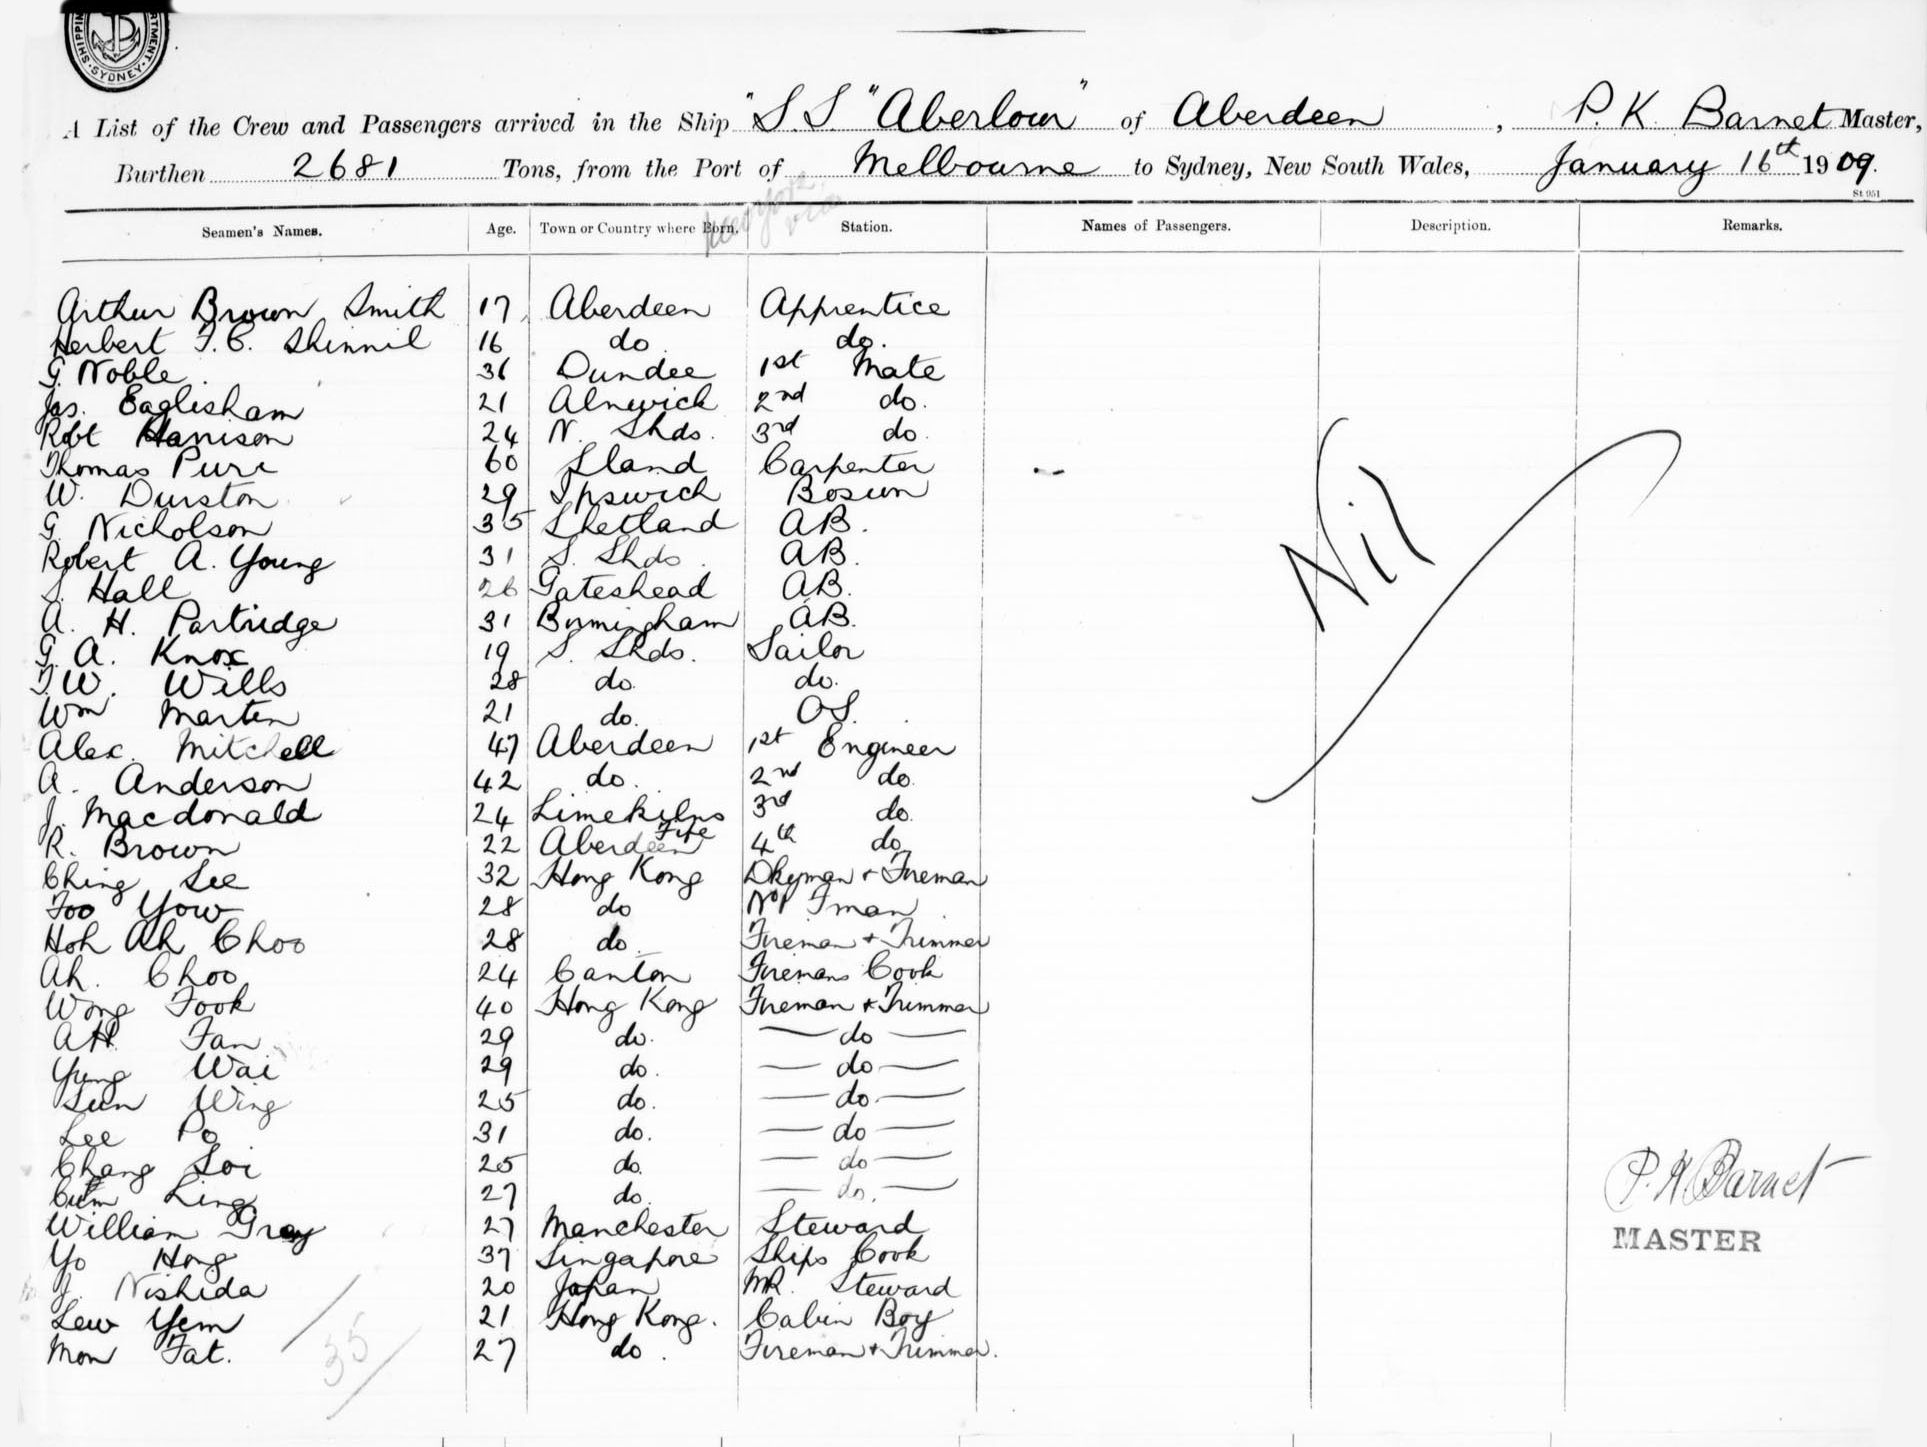 SHIPPING
SYDNEY
A List of the Crew and Passengers arrived in the Ship "S.S. "Aberlour" of Aberdeen, P. K. Barnet Master,
Burthen 2681 Tons, from the Port of Melbourne to Sydney, New South Wales, January 16th 1909.
New York via
St 951
Seamen's Names. Age. Town or Country where Born. Station. Names of Passengers. Description. Remarks.
Arthur Brown Smith 17 Aberdeen Apprentice
Herbert F. C. 16 do do.
G. Noble 36 Dundee 1st Mate
Jas. Eaglesham 21 Alnwick 2nd do.
Robt Harrison 24 N. Shds. 3rd do.
Thomas 60 Sland Carpenter
W. Durston 29 Ipswich Bosun
G. Nicholson 35 Shetland AB.
Robert A. Young 31 S. Shds. AB.
S. Hall 26 Gateshead AB.
A. H. Partridge 31 Birmingham AB.
G. A. Knox 19 S. Shds. Sailor
T. W. Wills 28 do. do.
Wm Marten 21 do. OS.
Alex. Mitchell 47 Aberdeen 1st Engineer
A. Anderson 42 do. 2nd do.
J. Macdonald 24 Limekilns Fife 3rd do.
R. Brown 22 Aberdeen 4th do
Ching See 32 Hong Kong Dkyman + Fireman
Foo Yow 28 do No 1 Fman
Hoh Ah Choo 28 do. Fireman + Trimmer
Ah. Choo 24 Canton Firemans Cook
Wong Fook 40 Hong Kong Fireman + Trimmer
AH Fan 29 do. do
Yung Wai 29 do. do
Sun Wing 25 do. do
Lee Po 31 do. do
Chang Loi 25 do. do
Ling 27 do. do.
William Gray 27 Manchester Steward
Yo Hong 37 Singapore Ships Cook
J. Nishida 20 Japan MR. Steward
Lew Yem 21 Hong Kong. Cabin Boy
Mon Fat. 27 do. Fireman + Trimmer.
35
Nil
P. K. Barnet
MASTER